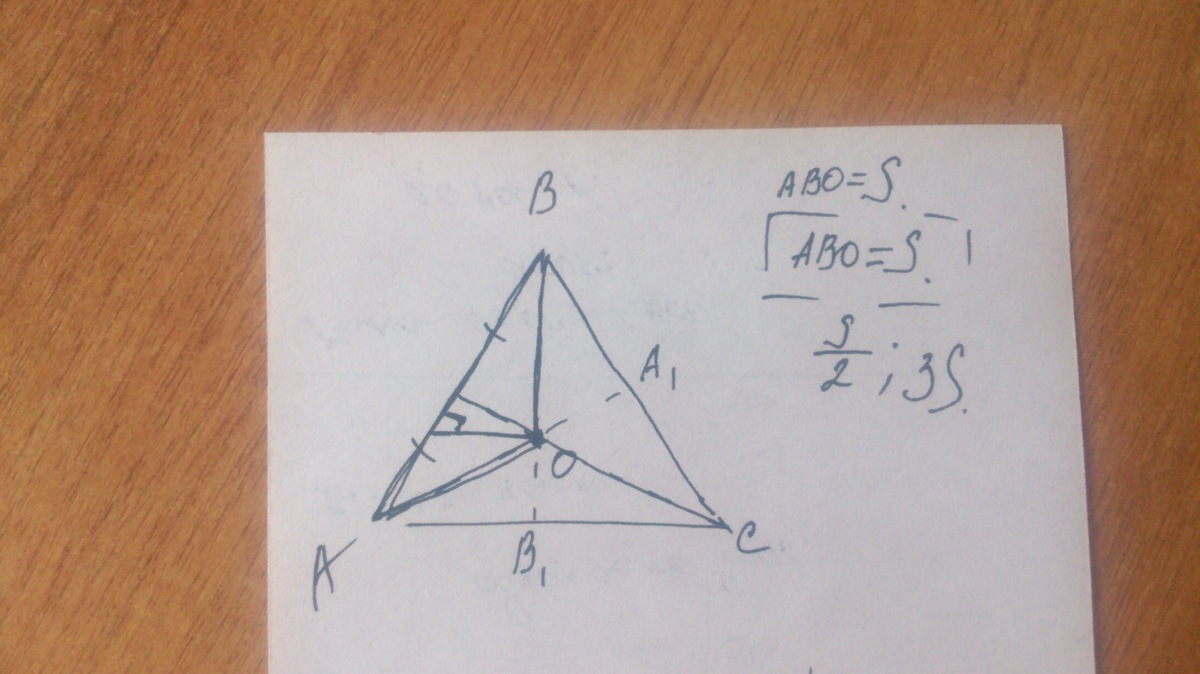 B
ABO=S.
ABO=S.
S/2 ; 3S.
A₁
O
A
B₁
C